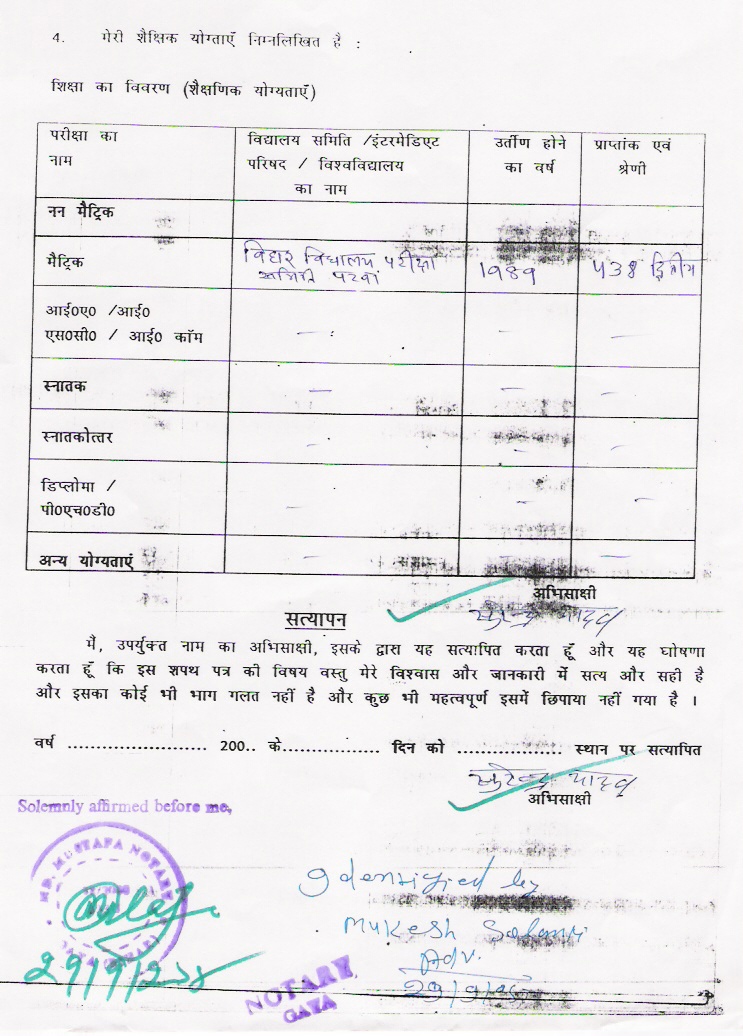 4. मेरी शैक्षिक योग्ताएँ निम्नलिखित है :
शिक्षा का विवरण (शैक्षणिक योग्यताएँ)
परीक्षा का नाम
विद्यालय समिति /इंटरमेडिएट परिषद / विश्वविद्यालय का नाम
उर्तीण होने का वर्ष
प्राप्तांक एवं श्रेणी
नन मैट्रिक
मैट्रिक
बिहार विद्यालय परीक्षा
समिति पटना
1989
438 द्वितीय
आई०ए० /आई०
एस०सी० / आई० कॉम
स्नातक
स्नातकोत्तर
डिप्लोमा /
पी०एच०डी०
अन्य योग्यताएं
अभिसाक्षी
सुरेन्द्र यादव
सत्यापन
मै, उपर्युक्त नाम का अभिसाक्षी, इसके द्वारा यह सत्यापित करता हूँ और यह घोषणा
करता हूँ कि इस शपथ पत्र की विषय वस्तु मेरे विश्वास और जानकारी में सत्य और सही है
और इसका कोई भी भाग गलत नहीं है और कुछ भी महत्वपूर्ण इसमें छिपाया नहीं गया है ।
वर्ष ........................ 200.. के................. दिन को ................... स्थान पर सत्यापित
सुरेन्द्र यादव
अभिसाक्षी
Solemnly affirmed before me,
MD. MUSTAFA NOTARY
Idensified by
Mukesh
Adv.
NOTARY
GAYA